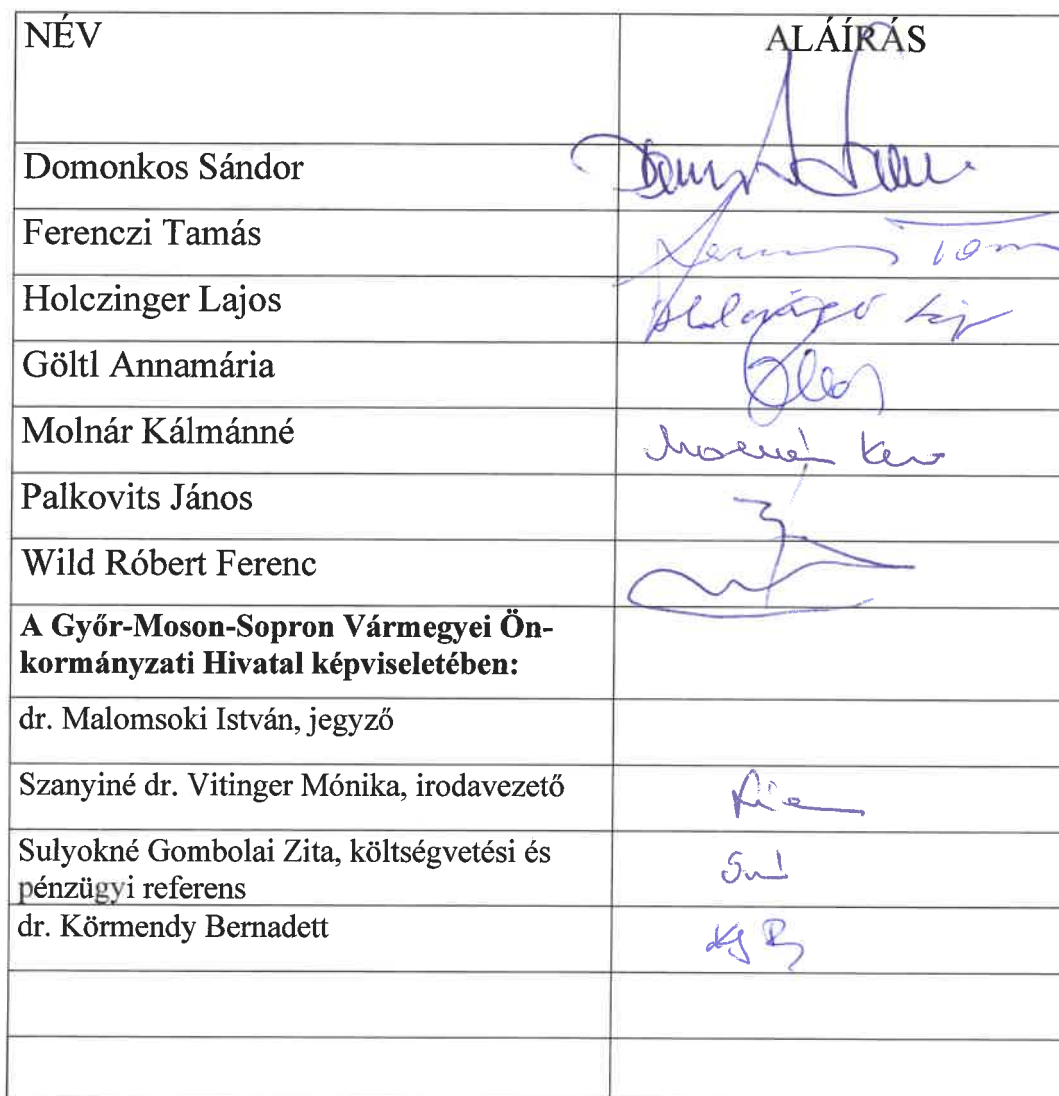 NÉV ALÁÍRÁS
Domonkos Sándor
Ferenczi Tamás
Holczinger Lajos
Göltl Annamária
Molnár Kálmánné
Palkovits János
Wild Róbert Ferenc
A Győr-Moson-Sopron Vármegyei Ön-
kormányzati Hivatal képviseletében:
dr. Malomsoki István, jegyző
Szanyiné dr. Vitinger Mónika, irodavezető
Sulyokné Gombolai Zita, költségvetési és
pénzügyi referens
dr. Körmendy Bernadett